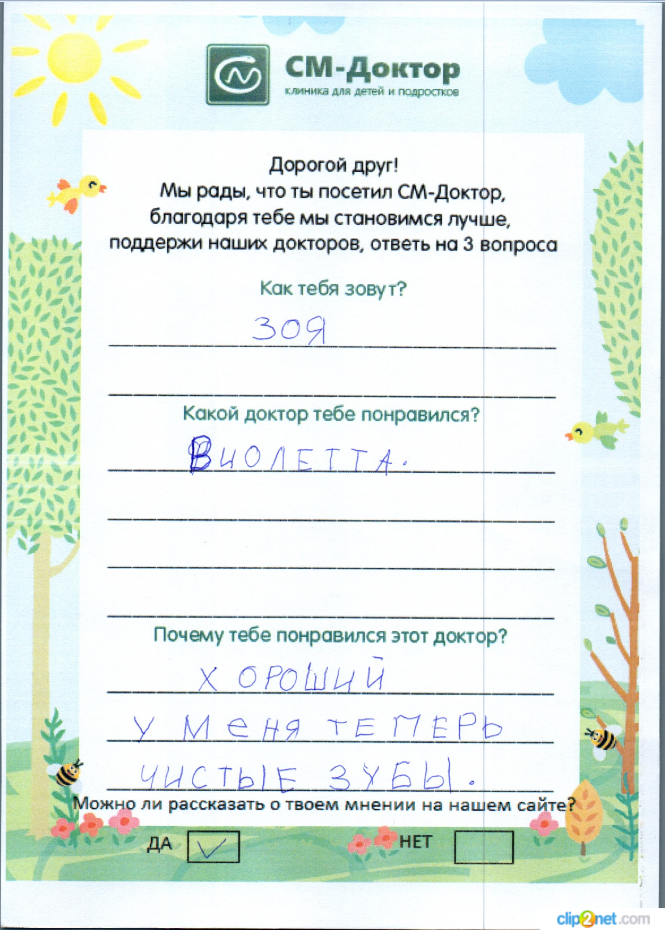 СМ-Доктор
клиника для детей и подростков
Дорогой друг!
Мы рады, что ты посетил СМ-Доктор,
благодаря тебе мы становимся лучше,
поддержи наших докторов, ответь на 3 вопроса
Как тебя зовут?
ЗОЯ
Какой доктор тебе понравился?
ВИОЛЕТТА.
Почему тебе понравился этот доктор?
ХОРОШИЙ
У МЕНЯ ТЕПЕРЬ
ЧИСТЫЕ ЗУБЫ.
Можно ли рассказать о твоем мнении на нашем сайте?
ДА НЕТ
clip2net.com